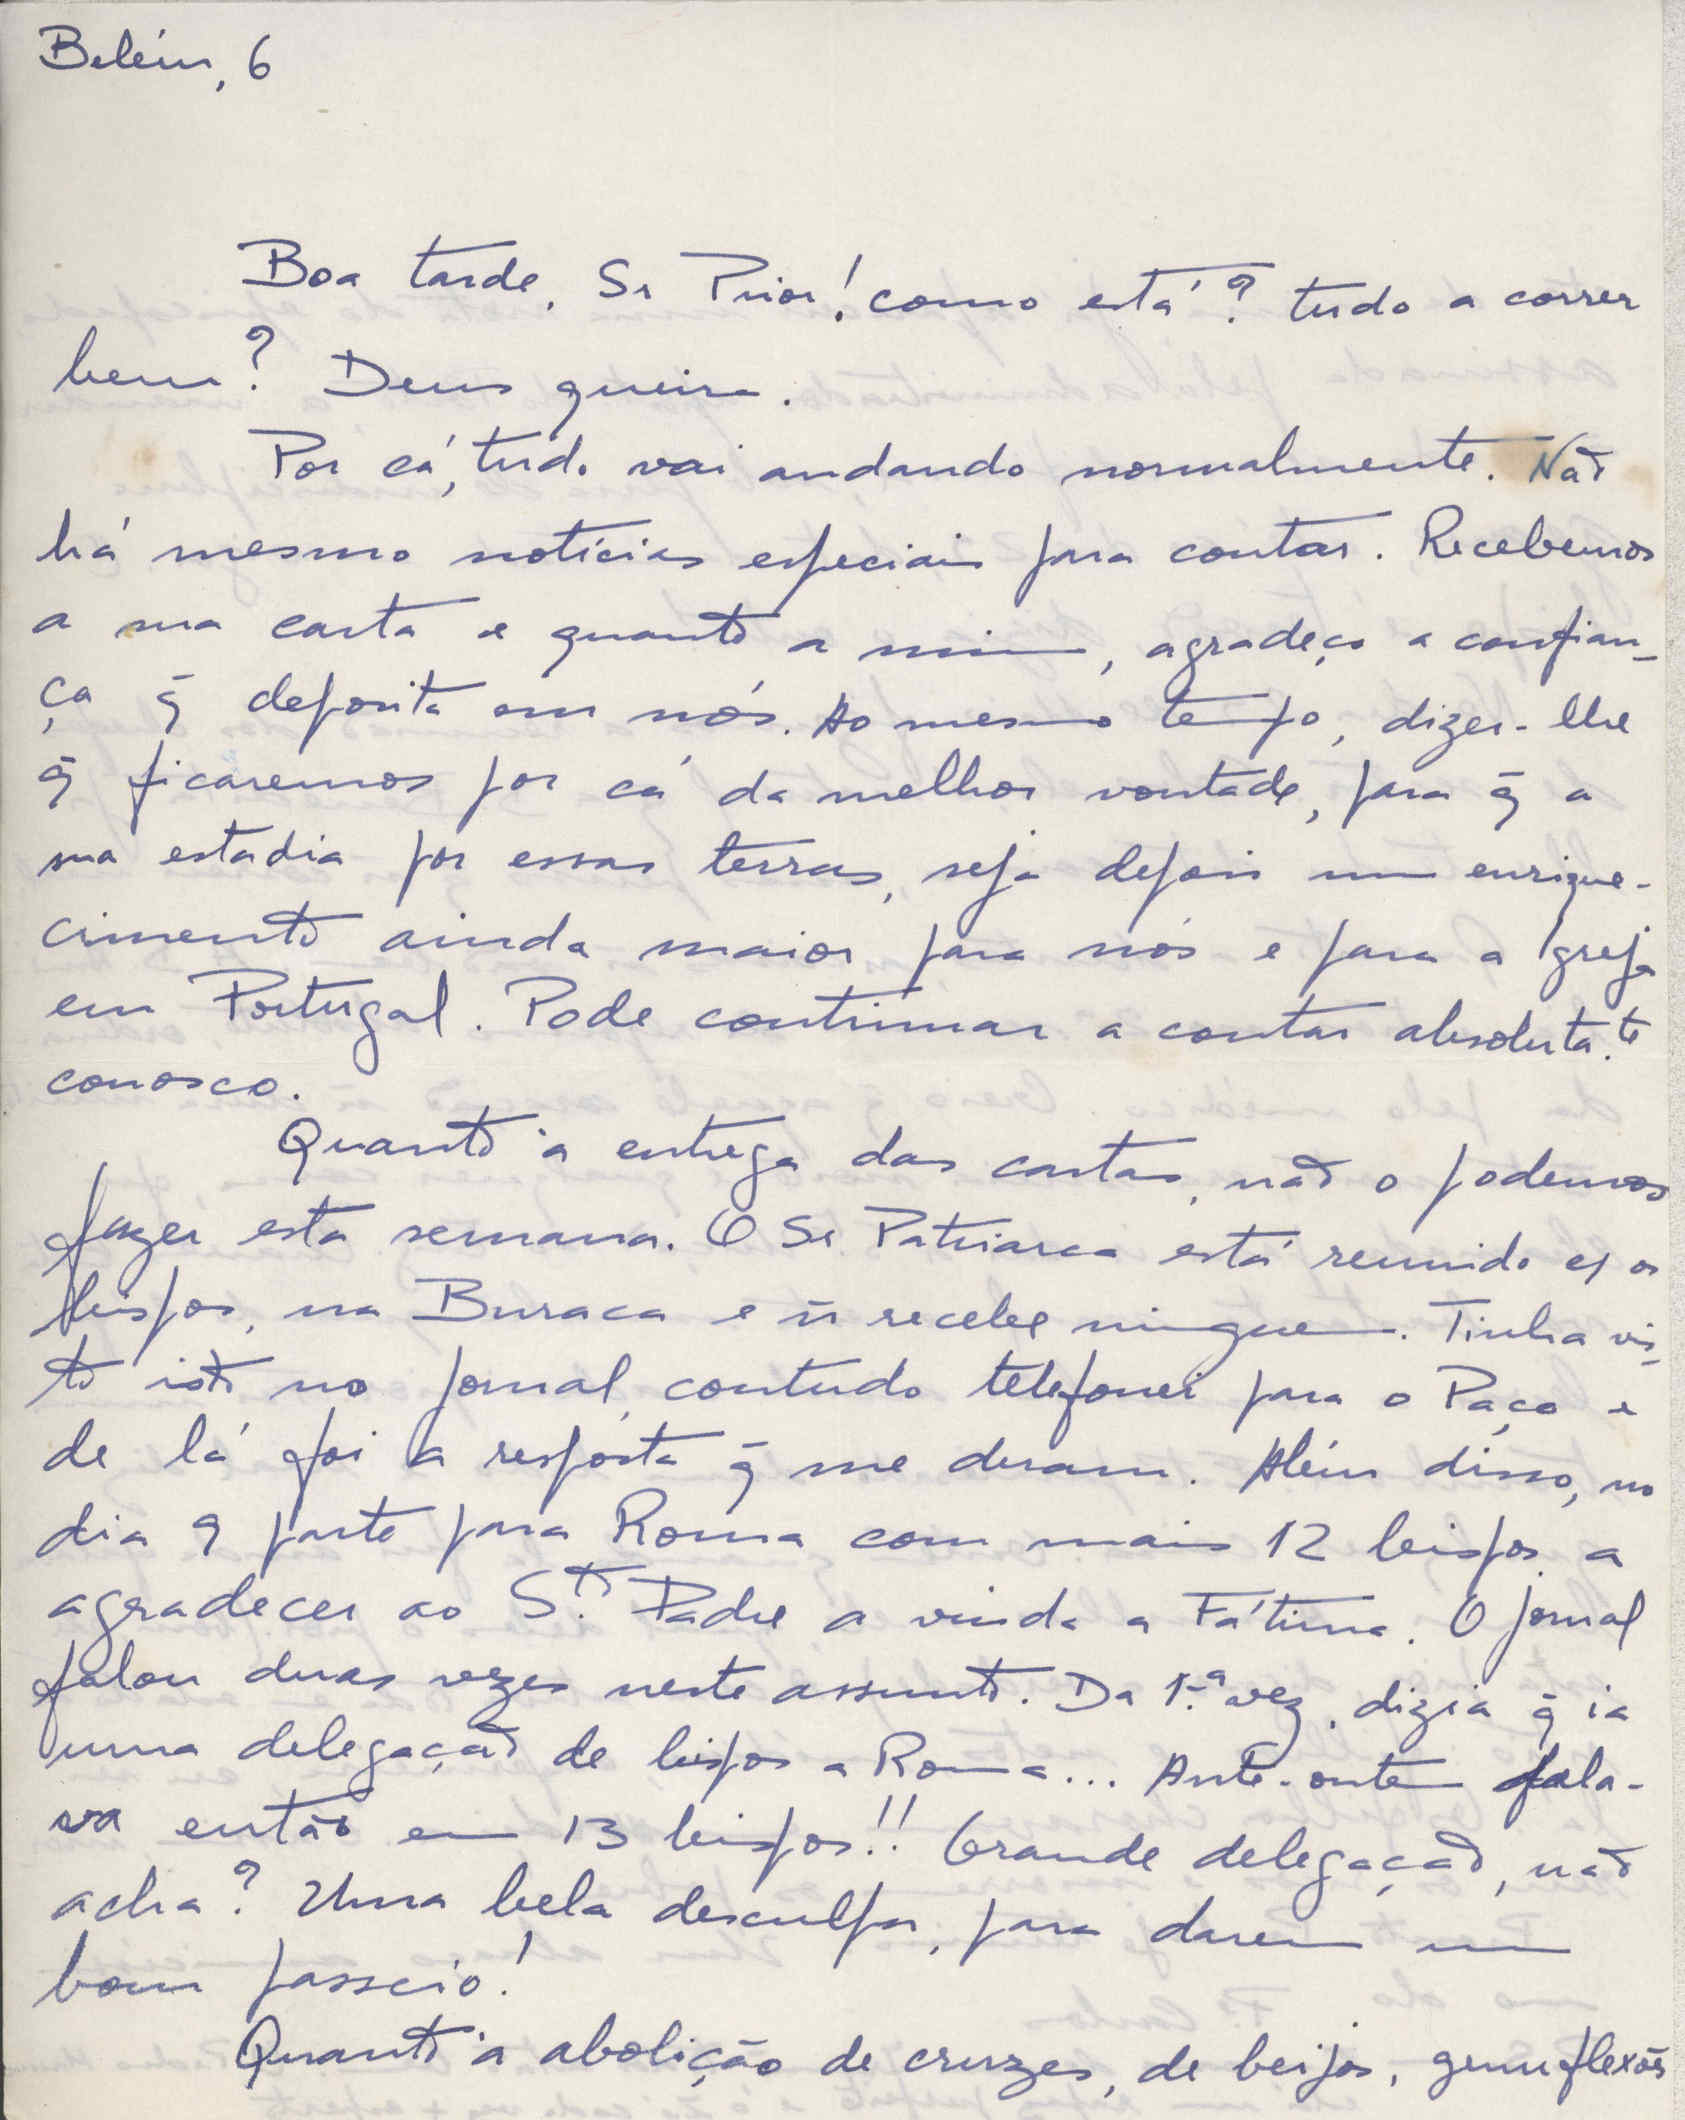 Belém, 6
Boa tarde, Sr Prior! como está? tudo a correr
bem? Deus queira.
Por cá, tudo vai andando normalmente. Não
há mesmo notícias especiais para contar. Recebemos
a sua carta e quanto a mim, agradeço a confian-
ça q̃ deposita em nós. Ao mesmo tempo, dizer-lhe
q̃ ficaremos por cá da melhor vontade, para q̃ a
sua estadia por essas terras, seja depois um enrique-
cimento ainda maior para nós e para a Igreja
em Portugal. Pode continuar a contar absoluta.te
conosco.
Quanto à entrega das cartas, não o podemos
fazer esta semana. O Sr Patriarca está reunido c/ os
bispos, na Buraca e ñ recebe ninguem. Tinha vis-
to isto no jornal, contudo telefonei para o Paço e
de lá foi a resposta q̃ me deram. Além disso, no
dia 9 parte para Roma com mais 12 bispos a
agradecer ao S.to Padre a vinda a Fátima. O jornal
falou duas vezes neste assunto. Da 1.ª vez, dizia q̃ ia
uma delegação de bispos a Roma... Ante-ontem fala-
va então em 13 bispos!! Grande delegação, não
acha? Uma bela desculpa, para darem um
bom passeio!
Quanto à abolição de cruzes, de beijos, genuflexões